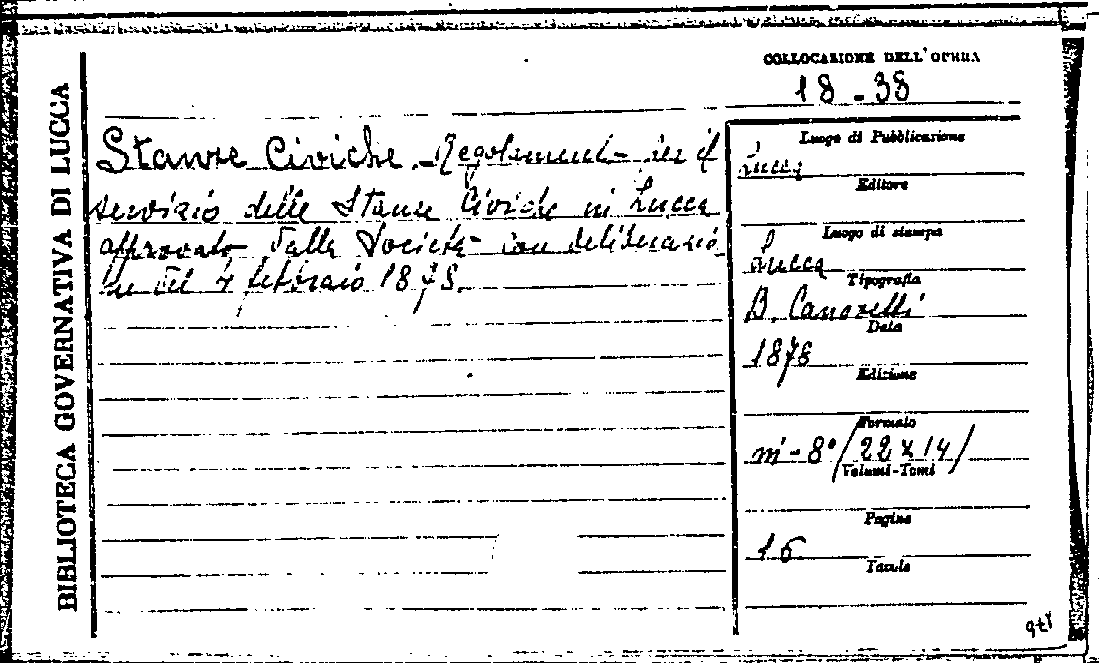 BIBLIOTECA GOVERNATIVA DI LUCCA
COLLOCAZIONE DELL'OPERA
18-38
Stanze Civiche. - Regolamento per il
servizio delle Stanze Civiche in Lucca
approvato dalla Società con deliberazio
ne del 4 febbraio 1878.
Luogo di Pubblicazione
Lucca
Editore
Luogo di stampa
Lucca
Tipografia
B. Canovetti
Data
1878
Edizione
Formato
in-8°/22x14/
Volumi-Tomi
Pagine
16
Tavole